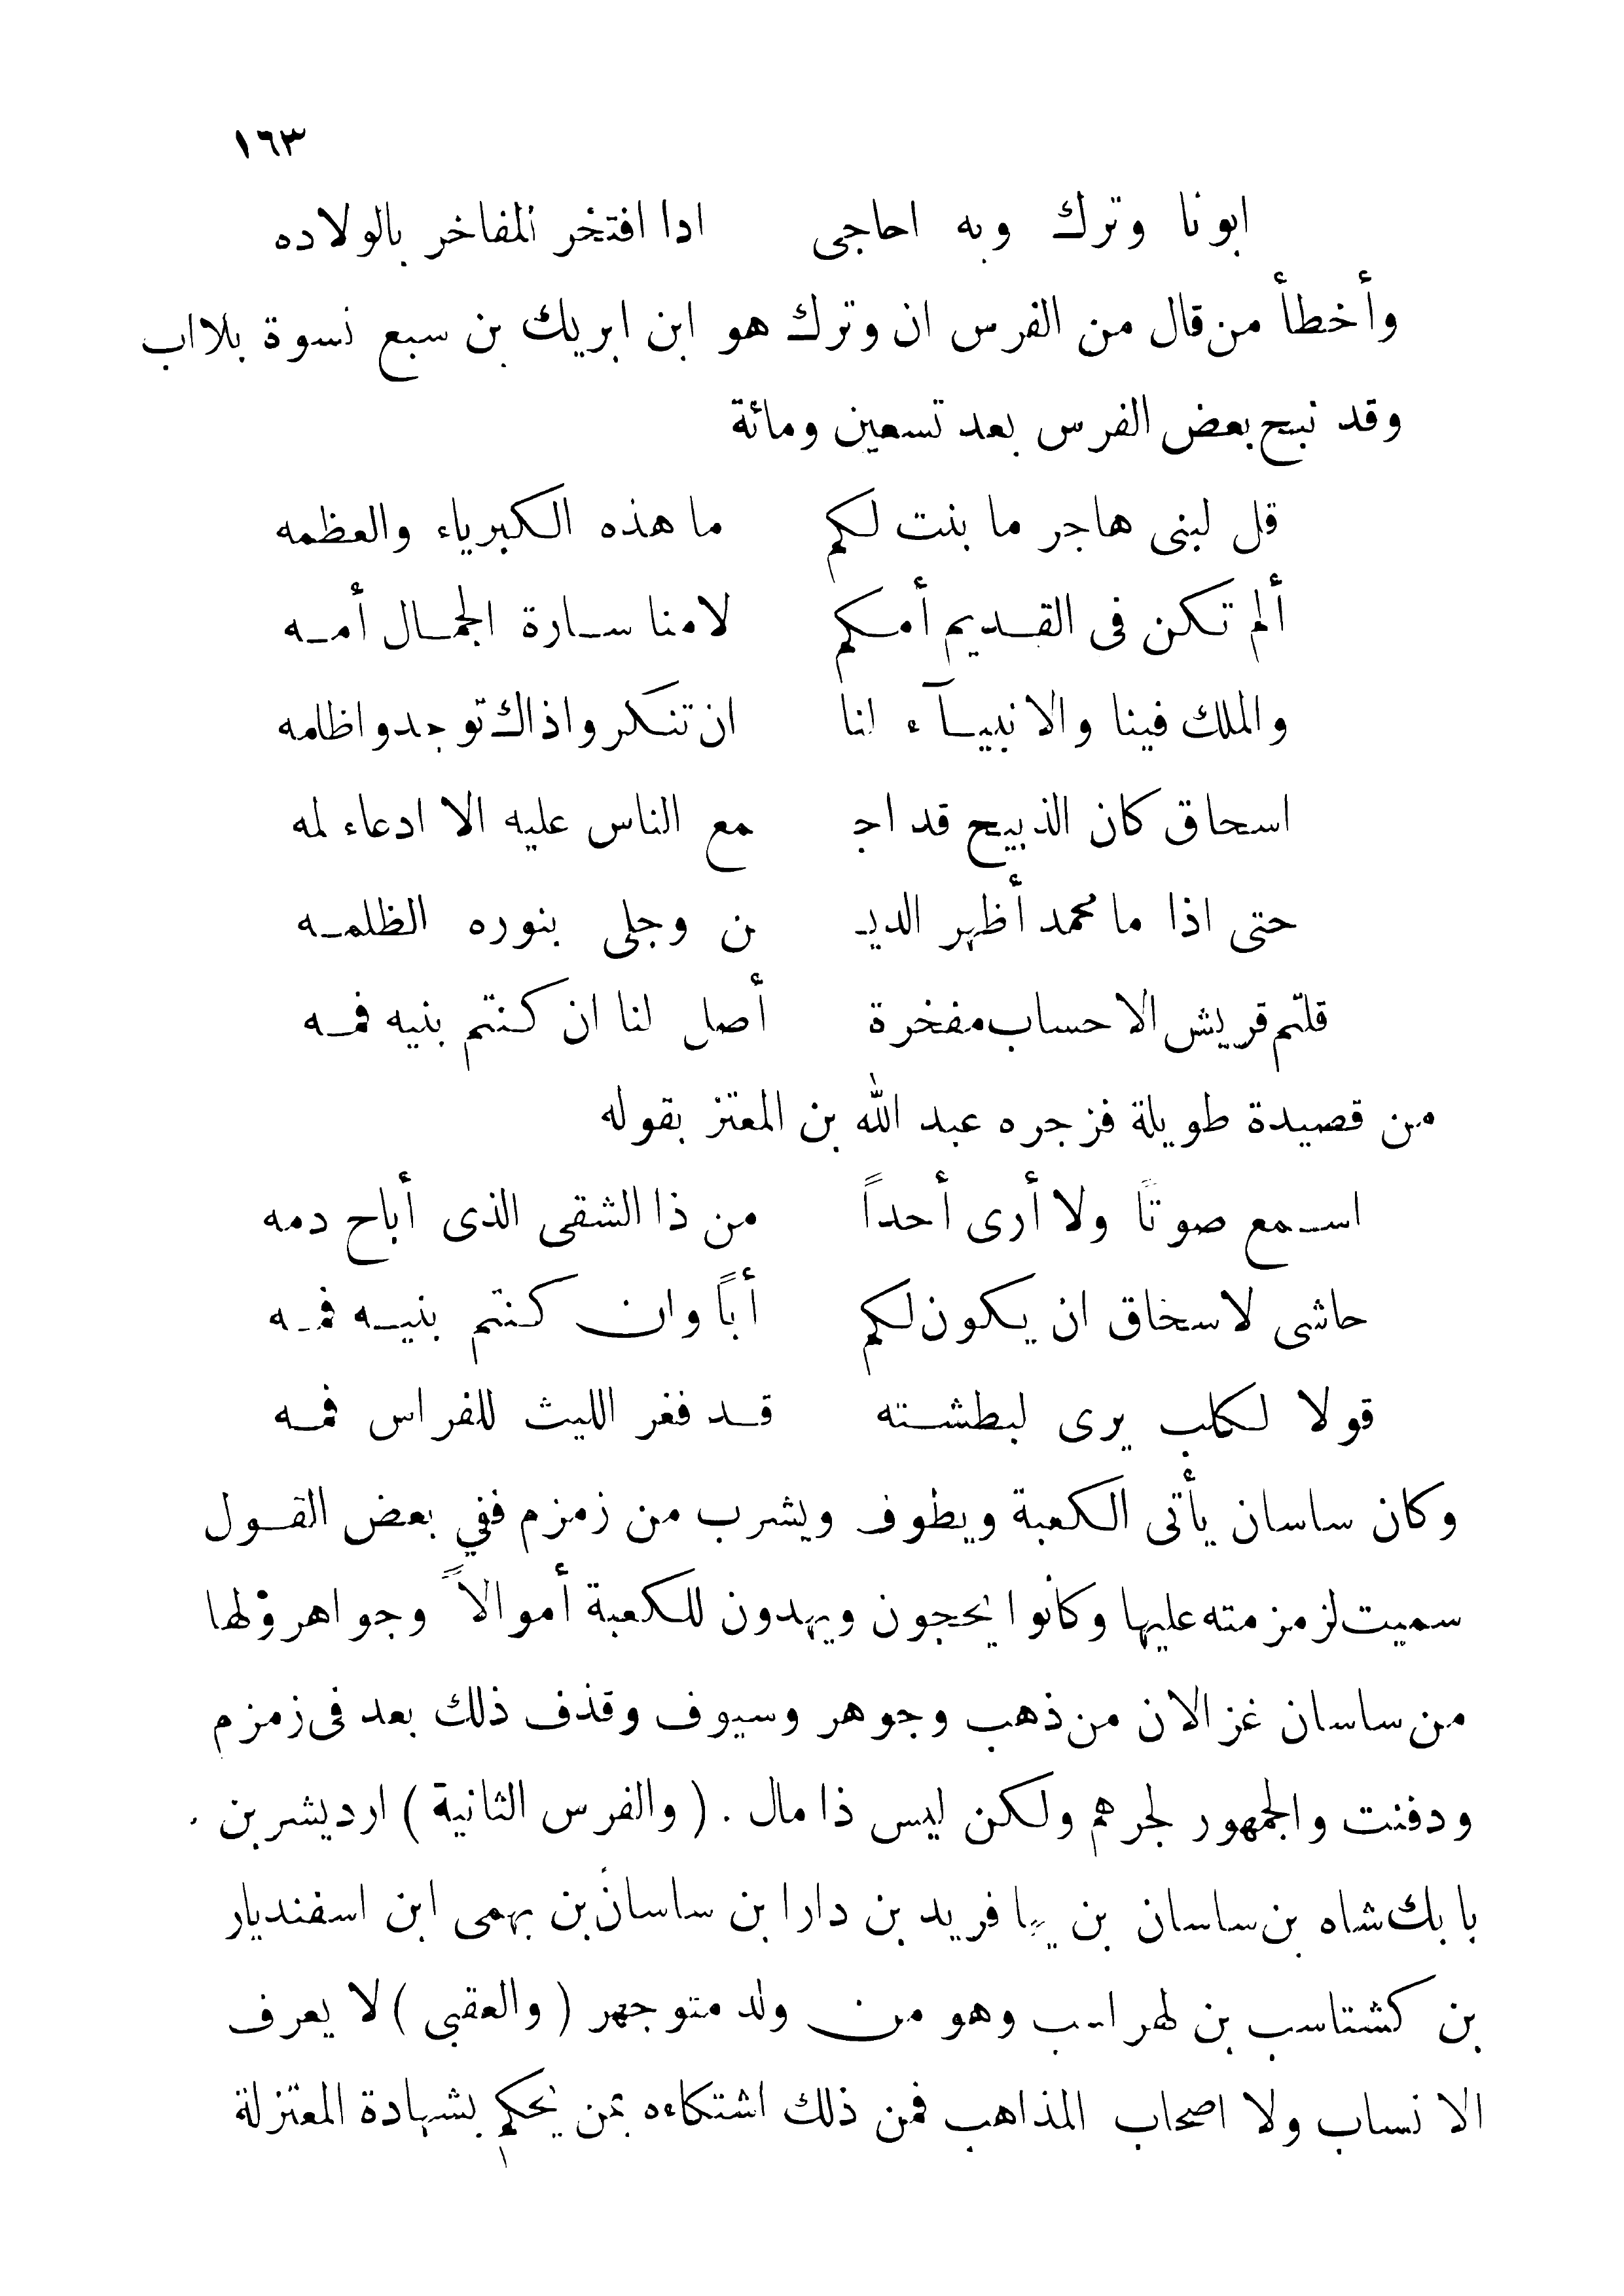 ١٦٣
ابونا وترك وبه احاجى ادا افتخر المفاخر بالولاده
وأخطأ من قال من الفرس ان وترك هو ابن ابريك بن سبع نسوة بلا اب
وقد نبح بعض الفرس بعد تسعين ومائة
قل لبنى هاجر ما بنت لكم ما هذه الكبرياء والعظمه
ألم تكن فى القديم أمكم لامنا سارة الجمال أمه
والملك فينا والانبيآء لنا ان تنكروا ذاك توجدوا ظلمه
اسحاق كان الذبيح قد اجـ ـمع الناس عليه الا ادعاء لمه
حتى اذا ما محمد أظهر الديـ ـن وجلى بنوره الظلمه
قلتم قريش الاحساب مفخرة أصل لنا ان كنتم بنيه فمه
من قصيدة طويلة فزجره عبد الله بن المعتز بقوله
اسمع صوتاً ولا أرى أحداً من ذا الشقى الذى أباح دمه
حاشى لاسخاق ان يكون لكم أباً وان كنتم بنيه فمه
قولا لكلب يرى لبطشته قد فغر الليث للفراس فمه
وكان ساسان يأتى الكعبة ويطوف ويشرب من زمزم ففي بعض القول
سميت لزمزمته عليها وكانوا يحجون ويهدون للكعبة أموالاً وجواهر ولها
من ساسان غزالان من ذهب وجوهر وسيوف وقذف ذلك بعد فى زمزم
ودفنت والجمهور لجرهم ولكن ليس ذا مال . ( والفرس الثانية ) ارديشر بن
بابك شاه بن ساسان بن فريد بن دارا بن ساسان بن بهمى ابن اسفنديار
بن كشتاسب بن وهو من ولد متوجهر ( والعقبى ) لا يعرف
الانساب ولا اصحاب المذاهب فمن ذلك اشتكاءه بمن يحكم بشهادة المعتزلة